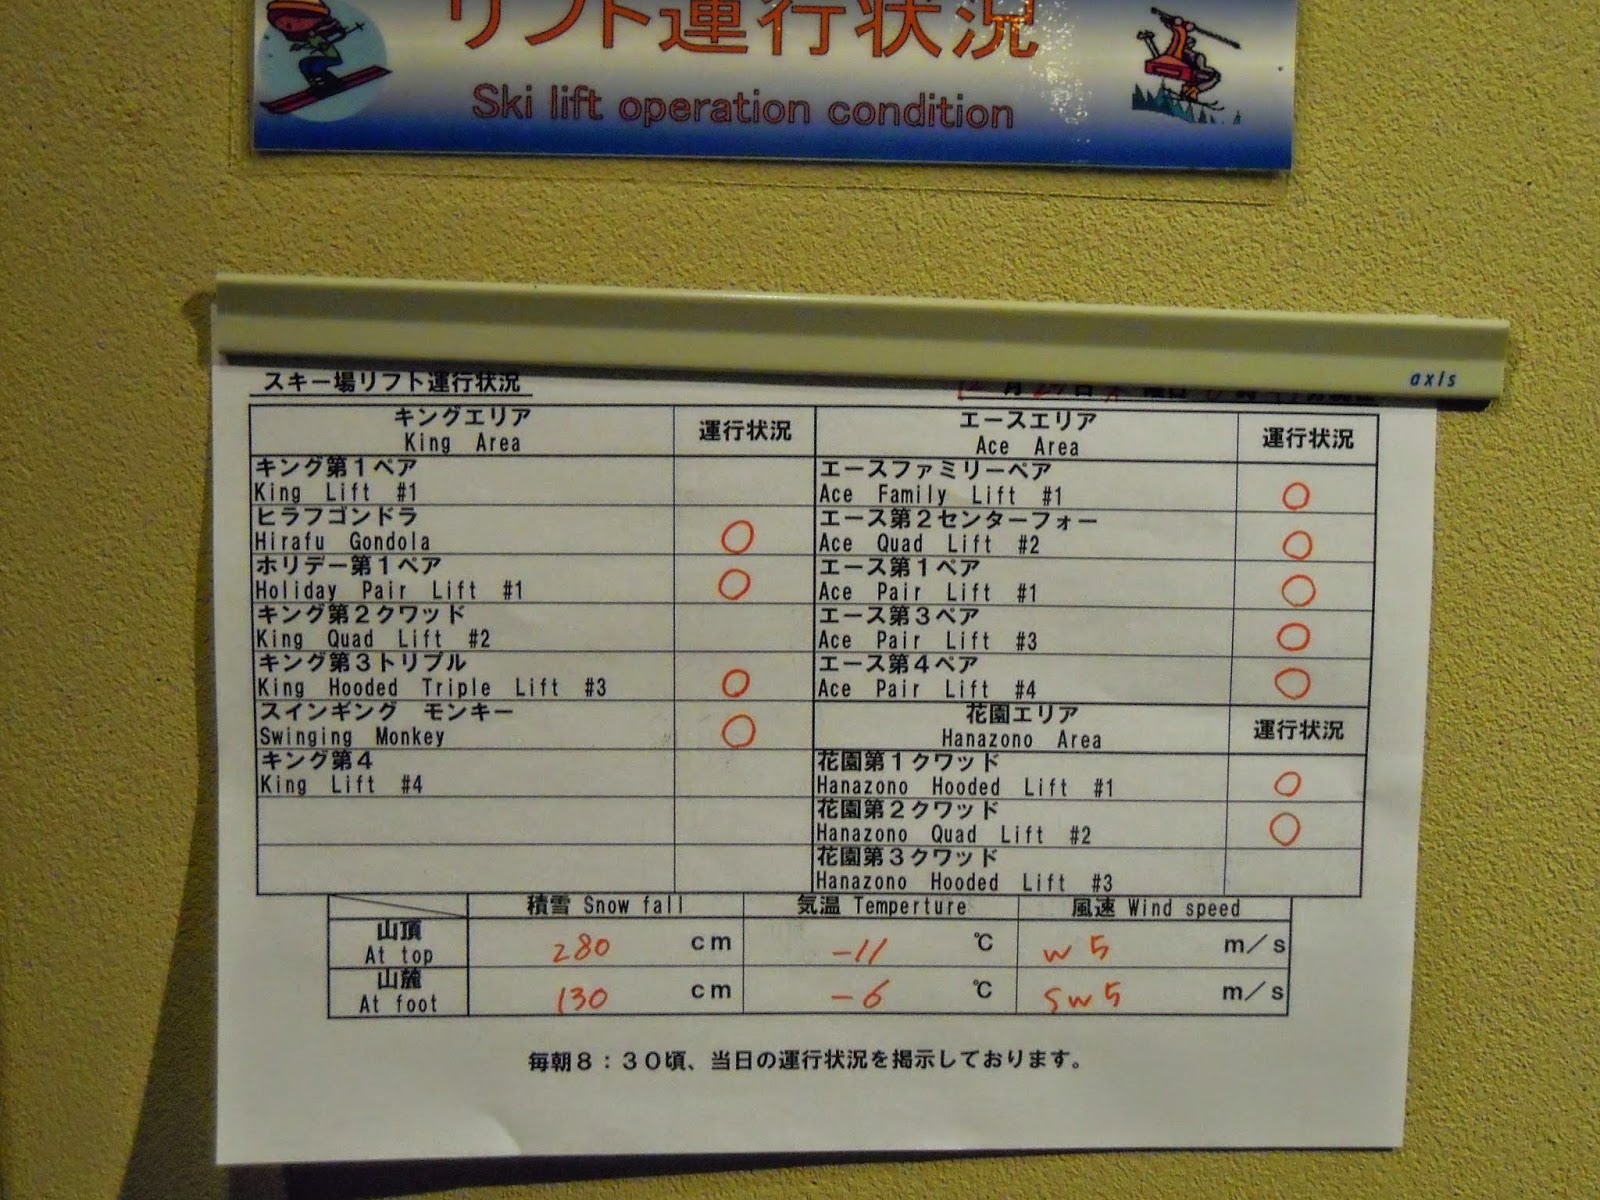 リフト運行状況
Ski lift operation condition
axis
スキー場リフト運行状況
キングエリア 運行状況 エースエリア 運行状況
King Area Ace Area
キング第１ペア エースファミリーペア
King Lift #1 Ace Family Lift #1 ○
ヒラフゴンドラ エース第２センターフォー
Hirafu Gondola ○ Ace Quad Lift #2 ○
ホリデー第１ペア エース第１ペア
Holiday Pair Lift #1 ○ Ace Pair Lift #1 ○
キング第２クワッド エース第３ペア
King Quad Lift #2 Ace Pair Lift #3 ○
キング第３トリプル エース第４ペア
King Hooded Triple Lift #3 ○ Ace Pair Lift #4 ○
スインギング モンキー 花園エリア 運行状況
Swinging Monkey ○ Hanazono Area
キング第４ 花園第１クワッド
King Lift #4 Hanazono Hooded Lift #1 ○
花園第２クワッド
Hanazono Quad Lift #2 ○
花園第３クワッド
Hanazono Hooded Lift #3
積雪 Snow fall 気温 Temperture 風速 Wind speed
山頂
At top 280 cm -11 ℃ W 5 m/s
山麓
At foot 130 cm -6 ℃ SW 5 m/s
毎朝８：３０頃、当日の運行状況を掲示しております。